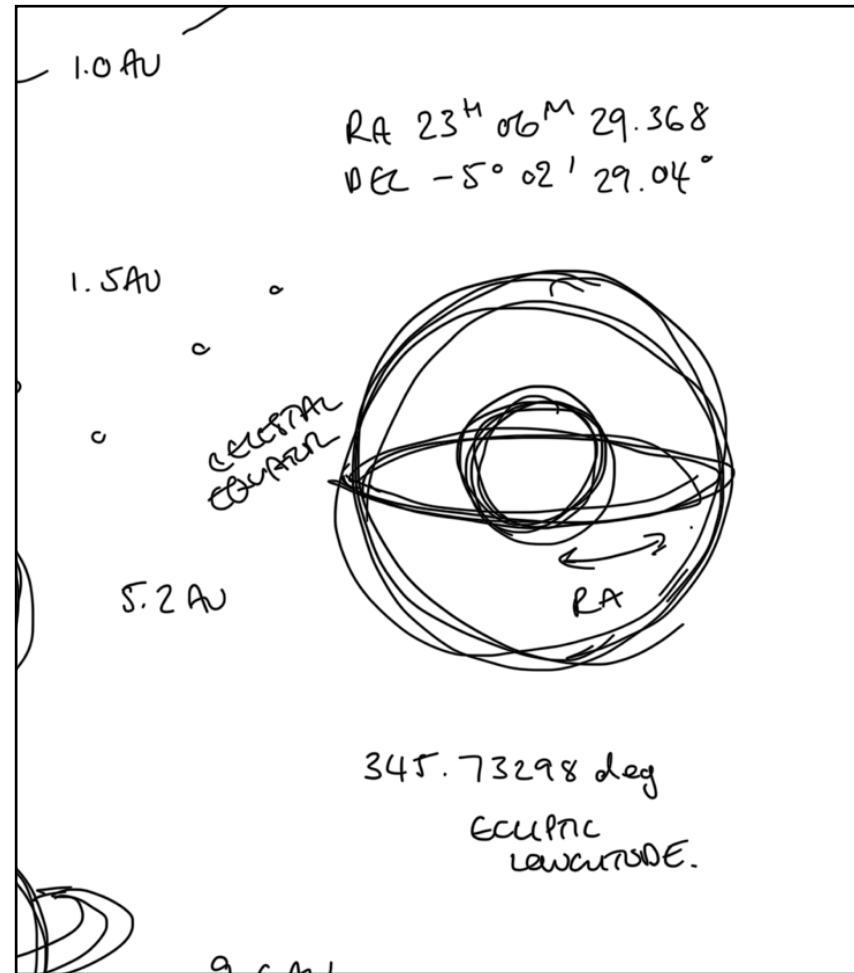 1.0 AU
RA 23H 06M 29.368
DEC -5° 02' 29.04°
1.5AU
CELESTIAL
EQUATOR
5.2 AU
RA
345.73298 deg
ECLIPTIC
LONGITUDE.